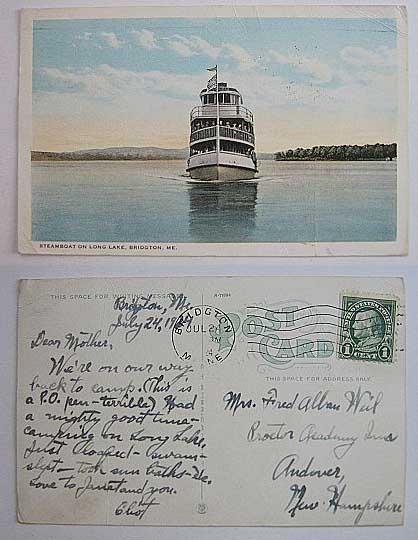 STEAMBOAT ON LONG LAKE, BRIDGTON, ME.
THIS SPACE FOR WRITING MESSAGES
POST CARD
THIS SPACE FOR ADDRESS ONLY
BRIDGTON
JUL 2
MAINE
UNITED STATES POSTAGE
1 CENT 1
Bridgton, Me.
July 24, 19
Dear Mother,
We're on our way
back to camp. (This is
a P.O. pen - terrible) Had
a mighty good time -
camping on Long Lake.
Just loafed - swam -
slept - took sun baths - etc.
Love to Janet and you.
Eliot
Mrs. Fred Alban Weil
Proctor Academy Inn
Andover,
New Hampshire